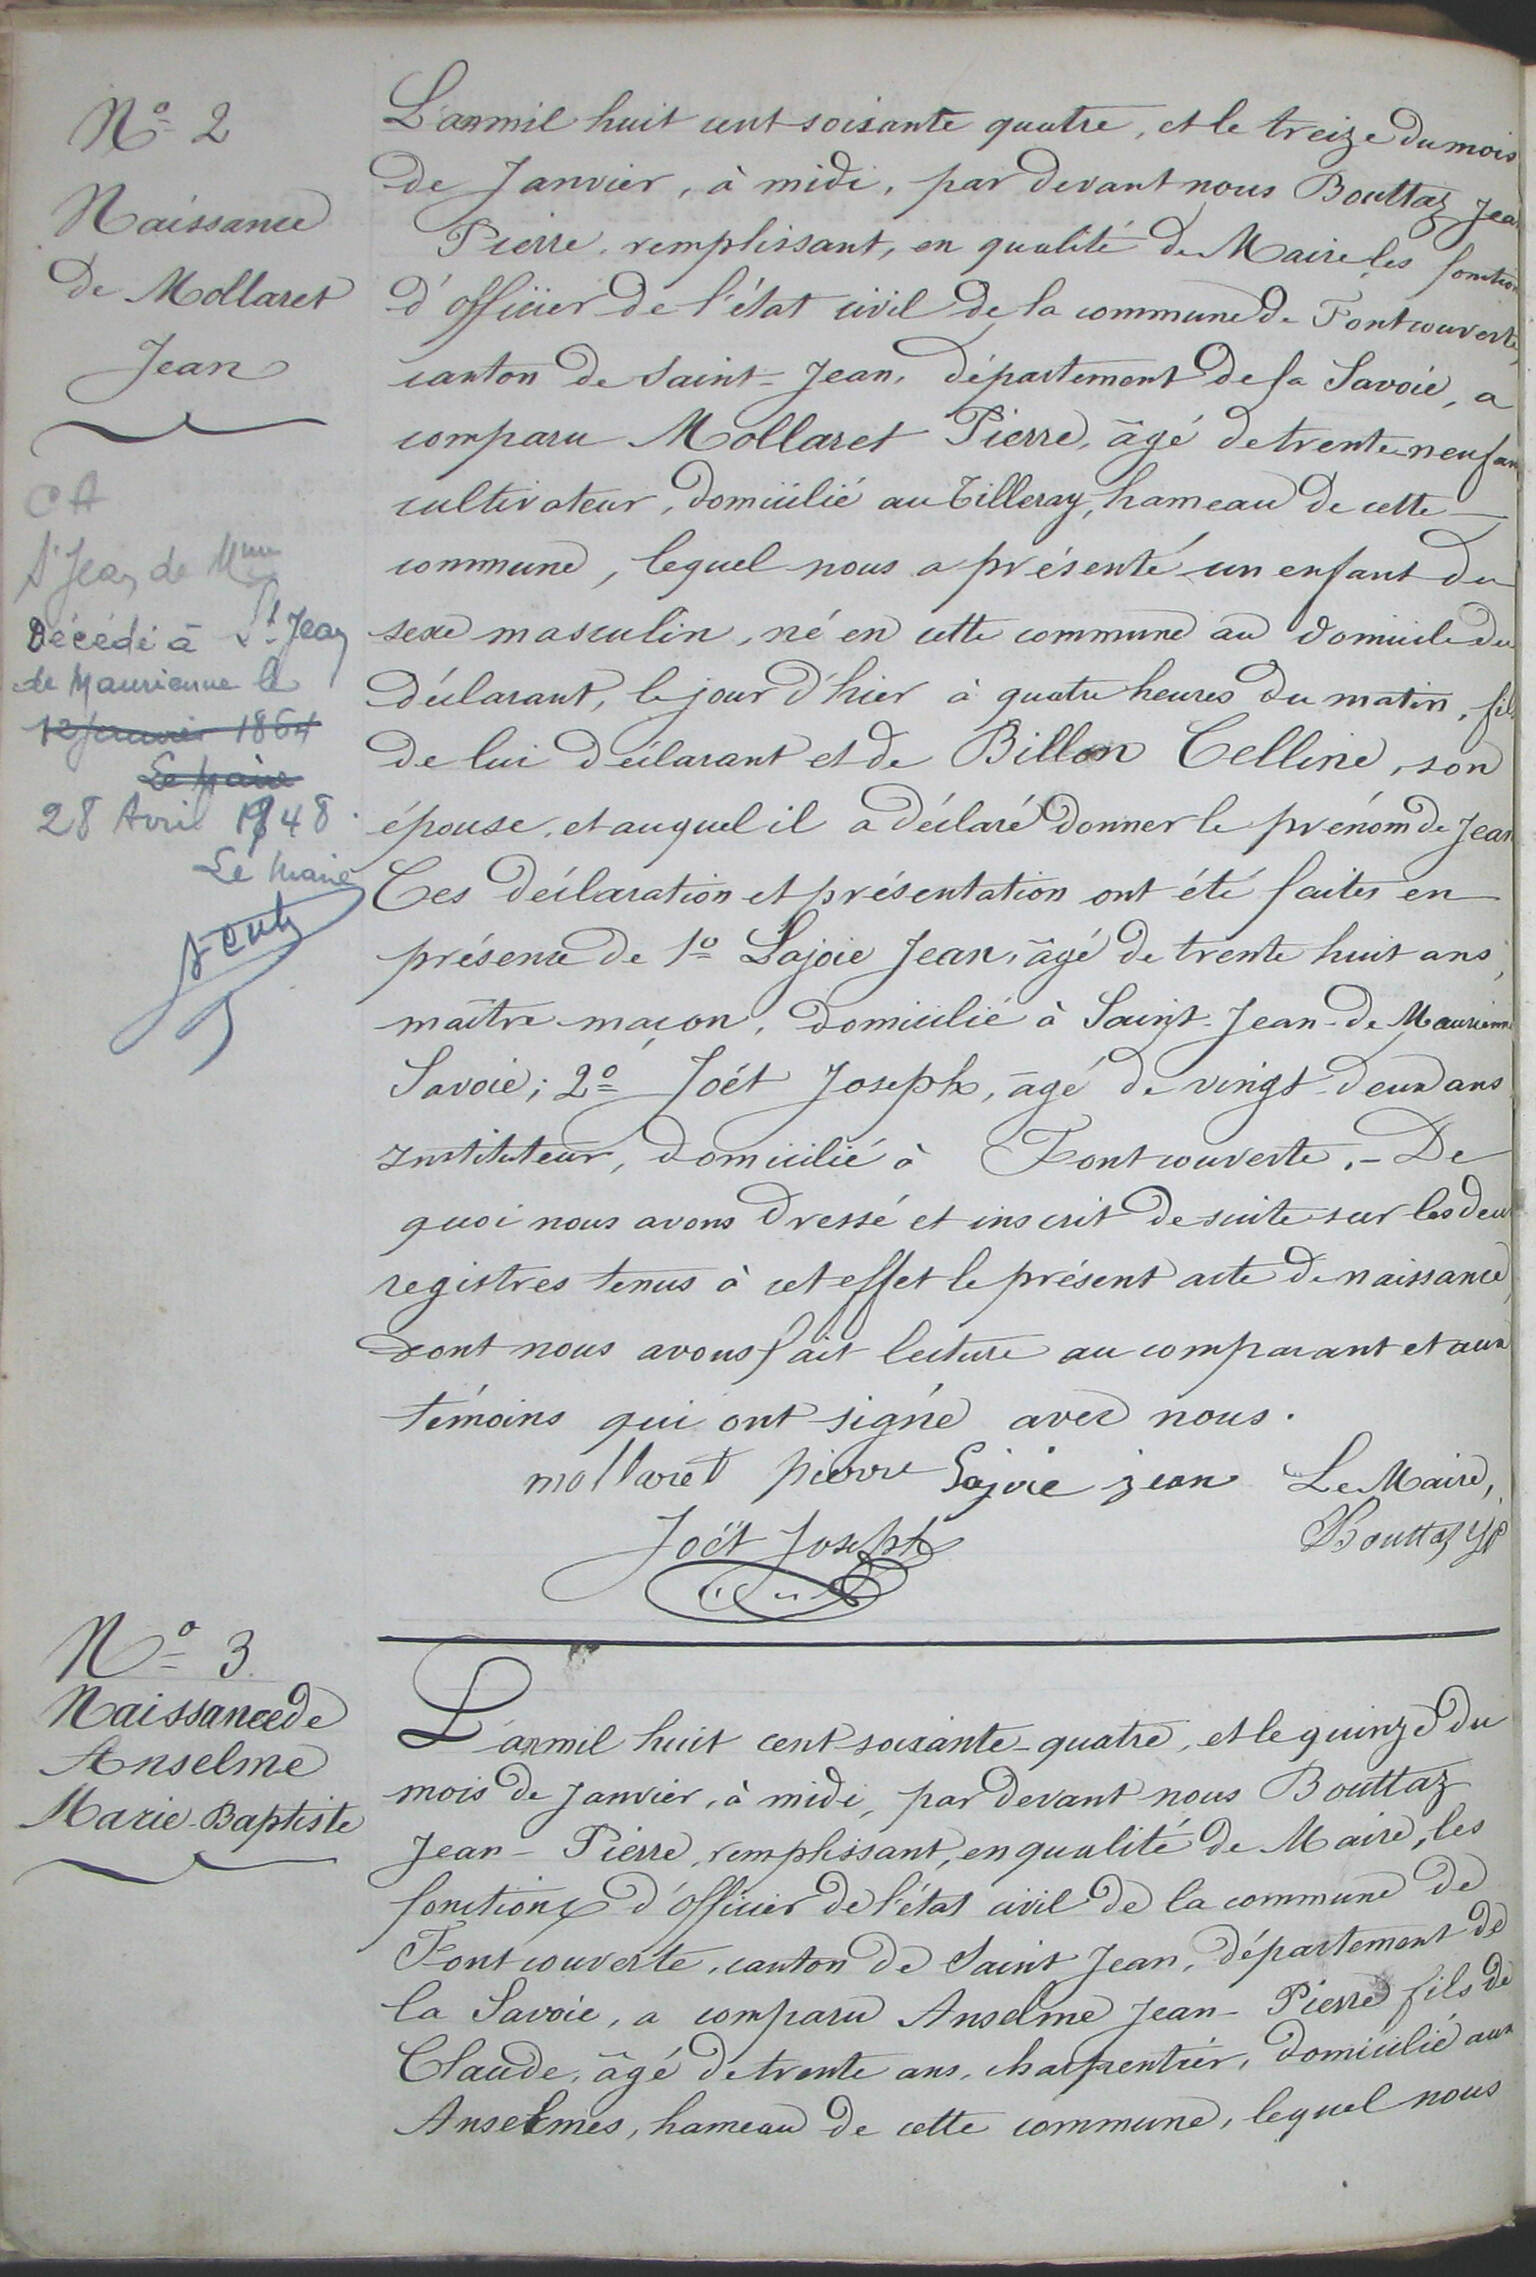 N° 2
Naissance
de Mollaret
Jean
CA
St Jean de Mnne
Décédé à St Jean
de Maurienne le
12 janvier 1864
Le Maire
28 Avril 1948
Le Maire
L'an mil huit cent soixante quatre, et le treize du mois
de Janvier, à midi, par devant nous Bouttaz Jean
Pierre, remplissant, en qualité de Maire les fonction
d'officier de l'état civil de la commune de Fontcouverte,
canton de Saint-Jean, département de la Savoie, a
comparu Mollaret Pierre, âgé de trente-neuf an
cultivateur, domicilié au Tilleray, hameau de cette
commune, lequel nous a présenté un enfant du
sexe masculin, né en cette commune au domicile du
déclarant, le jour d'hier à quatre heures du matin, fils
de lui déclarant et de Billon Celline, son
épouse, et auquel il a déclaré donner le prénom de Jean
Ces déclaration et présentation ont été faites en
présence de 1° Lajoie Jean, âgé de trente huit ans,
maître-maçon, domicilié à Saint-Jean-de Maurienne
Savoie; 2° Joët Joseph, âgé de vingt-deux ans
Instituteur, domicilié à Fontcouverte. - De
quoi nous avons dressé et inscrit de suite sur les deux
registres tenus à cet effet le présent acte de naissance,
dont nous avons fait lecture au comparant et aux
témoins qui ont signé avec nous.
mollaret pierre Lajoie jean Le Maire,
Joët Joseph Bouttaz JP
N° 3
Naissance de
Anselme
Marie-Baptiste
L'an mil huit cent soixante-quatre, et le quinze du
mois de Janvier, à midi, par devant nous Bouttaz
Jean-Pierre, remplissant, en qualité de Maire, les
fonctions d'officier de l'état civil de la commune de
Fontcouverte, canton de Saint Jean, département de
la Savoie, a comparu Anselme Jean-Pierre fils de
Claude, âgé de trente ans, charpentier, domicilié aux
Anselmes, hameau de cette commune, lequel nous